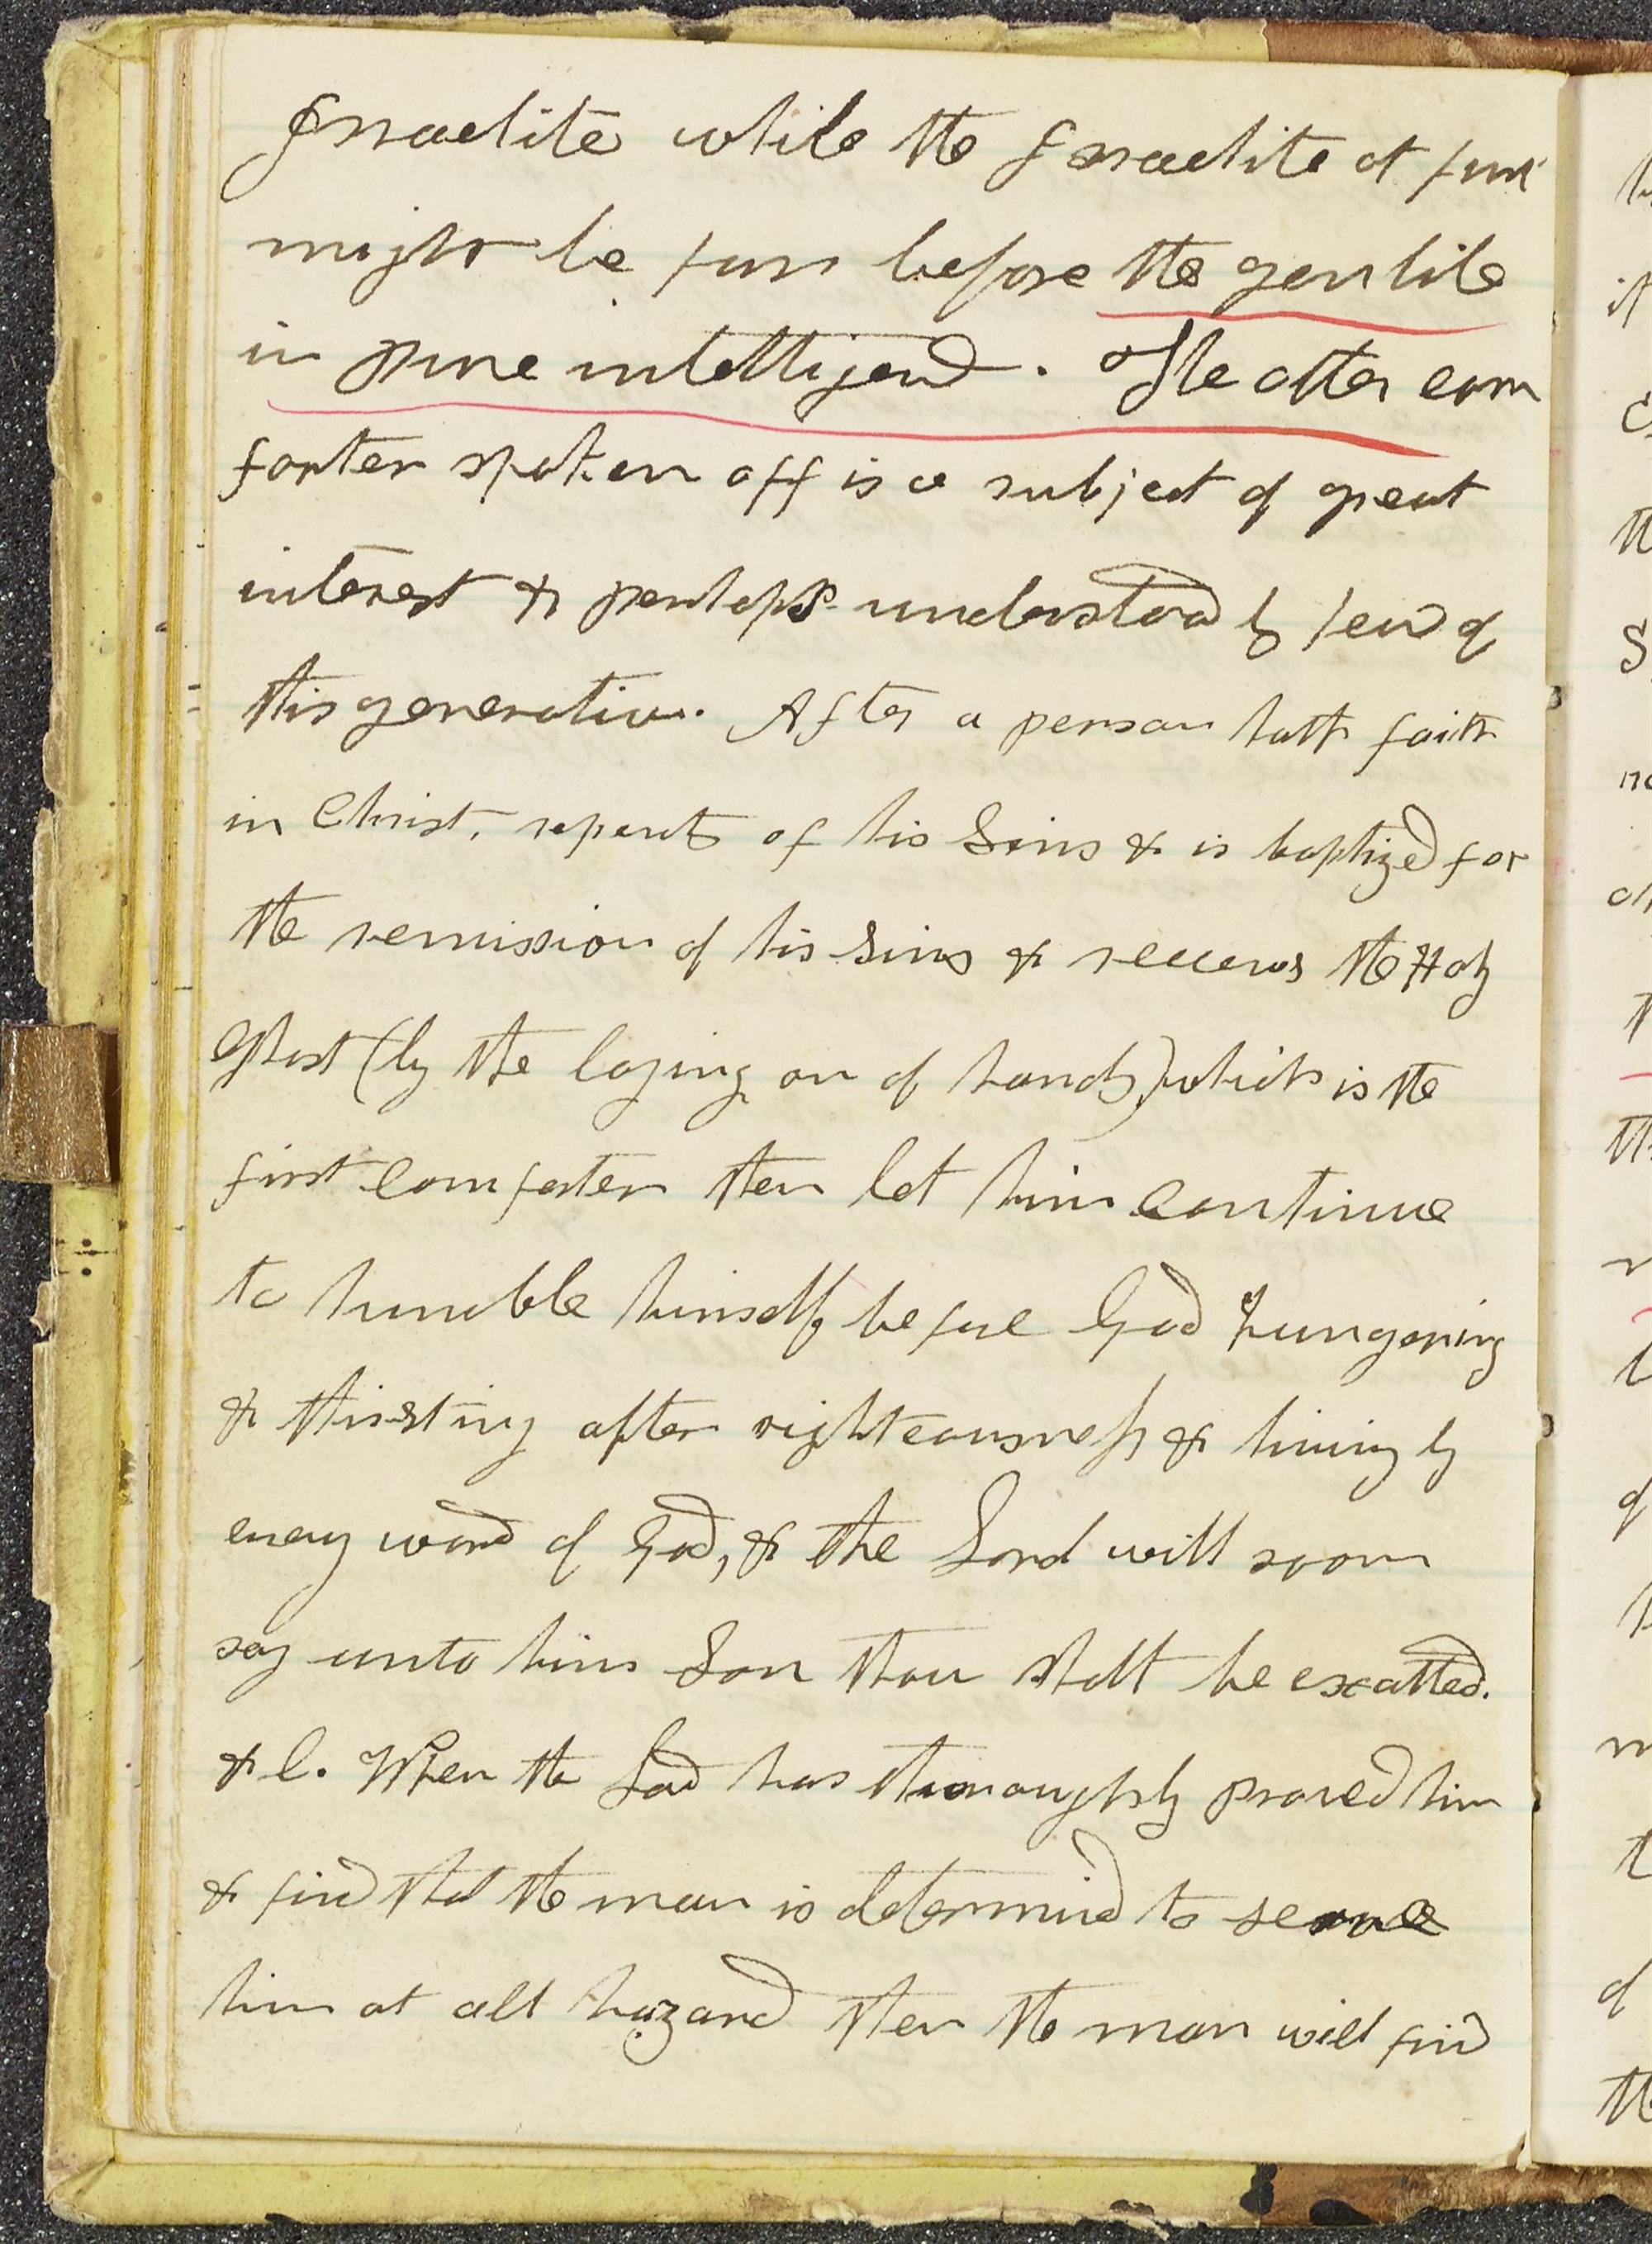 Israelite while the Israelite at first
might be far before the gentile
in pure intelligence. The other com
forter spoken off is a subject of great
interest & perhaps understood by few of
this generation. After a person hath faith
in Christ, repents of his Sins & is baptized for
the remission of his Sins & receives the Holy
Ghost (by the laying on of hands) which is the
first comforter then let him continue
to humble himself before God hungering
& thirsting after righteousness & living by
every word of God, & the Lord will soon
say unto him Son thou shalt be exalted.
&c. When the Lord has thoroughly proved him
& find that the man is determined to serve
him at all hazard then the man will find